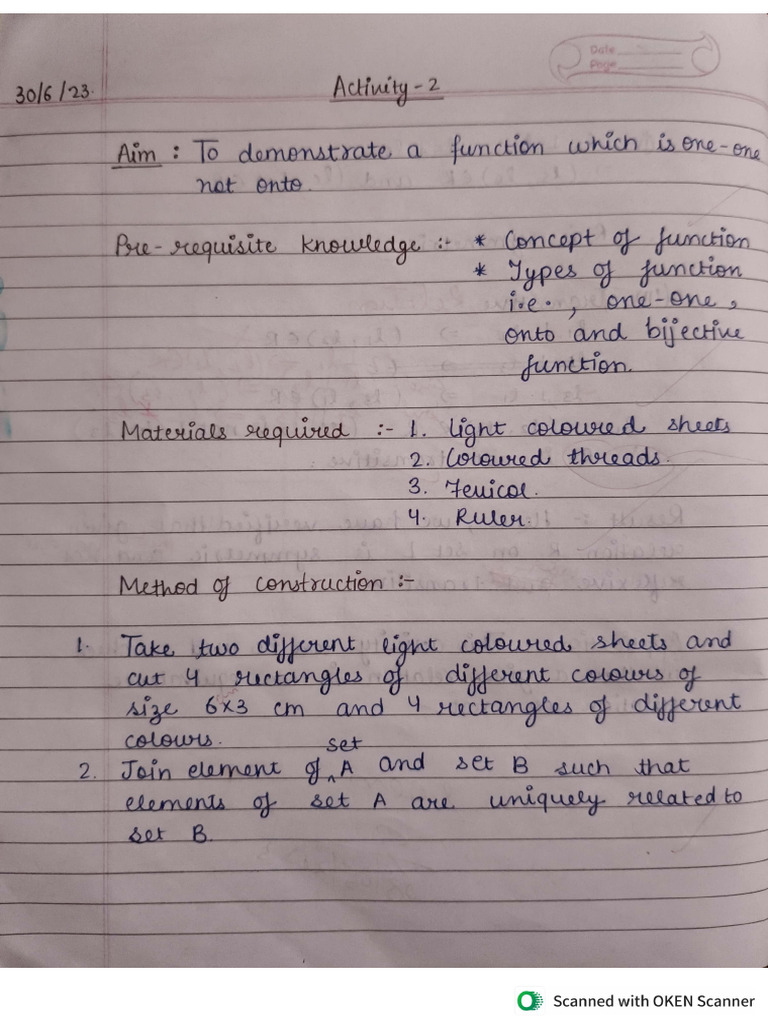 Date
Page
30/6/23.
Activity - 2
Aim : To demonstrate a function which is one-one
not onto.
Pre-requisite knowledge :- * Concept of function
* Types of function
i.e., one-one,
onto and bijective
function.
Materials required :- 1. Light coloured sheets
2. Coloured threads.
3. Fevicol.
4. Ruler.
Method of construction :-
1. Take two different light coloured sheets and
cut 4 rectangles of different colours of
size 6x3 cm and 4 rectangles of different
colours.
2. Join element of set A and set B such that
elements of set A are uniquely related to
set B.
Scanned with OKEN Scanner